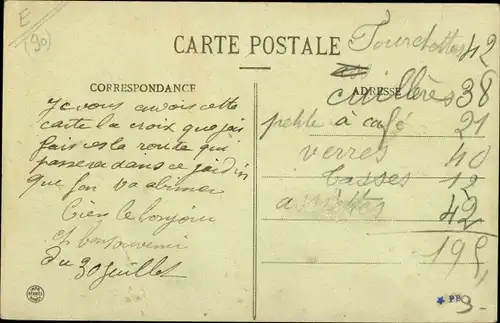 E
(90)
CARTE POSTALE
CORRESPONDANCE
Je vous envois cette
carte la croix que jai
fais est la route qui
passera dans ce jardin
que l'on va abimer
bien le bonjour
et bon souvenir
du 30 juillet
Fourchettes 42
ADRESSE
cuillères 38
petite à café 21
verres 40
tasses 12
assiettes 42
195